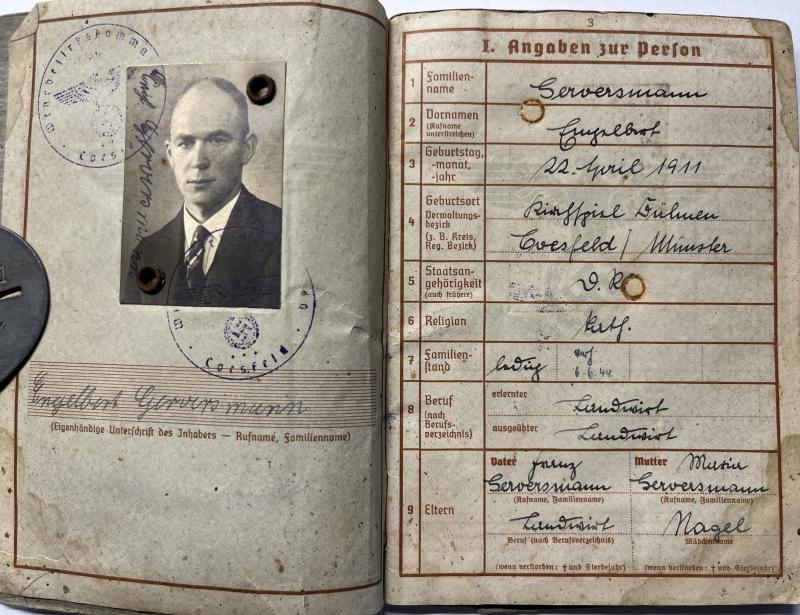 Wehrbezirkskomma
Coesfeld
Coesfeld
Engelbert Gerversmann
(Eigenhändige Unterschrift des Inhabers — Rufname, Familienname)
3
I. Angaben zur Person
1 Familienname Gerversmann
2 Vornamen (Rufname unterstreichen) Engelbert
3 Geburtstag, -monat, -jahr 22. April 1911
4 Geburtsort Kirchspiel Dülmen
Verwaltungsbezirk (z. B. Kreis, Reg. Bezirk) Coesfeld / Münster
5 Staatsangehörigkeit (auch frühere) D. R.
6 Religion kath.
7 Familienstand ledig verh 6.6.44
8 Beruf (nach Berufsverzeichnis) erlernter Landwirt
ausgeübter Landwirt
9 Eltern
Vater Franz Mutter Maria
Gerversmann Gerversmann
(Rufname, Familienname) (Rufname, Familienname)
Landwirt Nagel
Beruf (nach Berufsverzeichnis) Mädchenname
(wenn verstorben: † und Sterbejahr) (wenn verstorben: † und Sterbejahr)